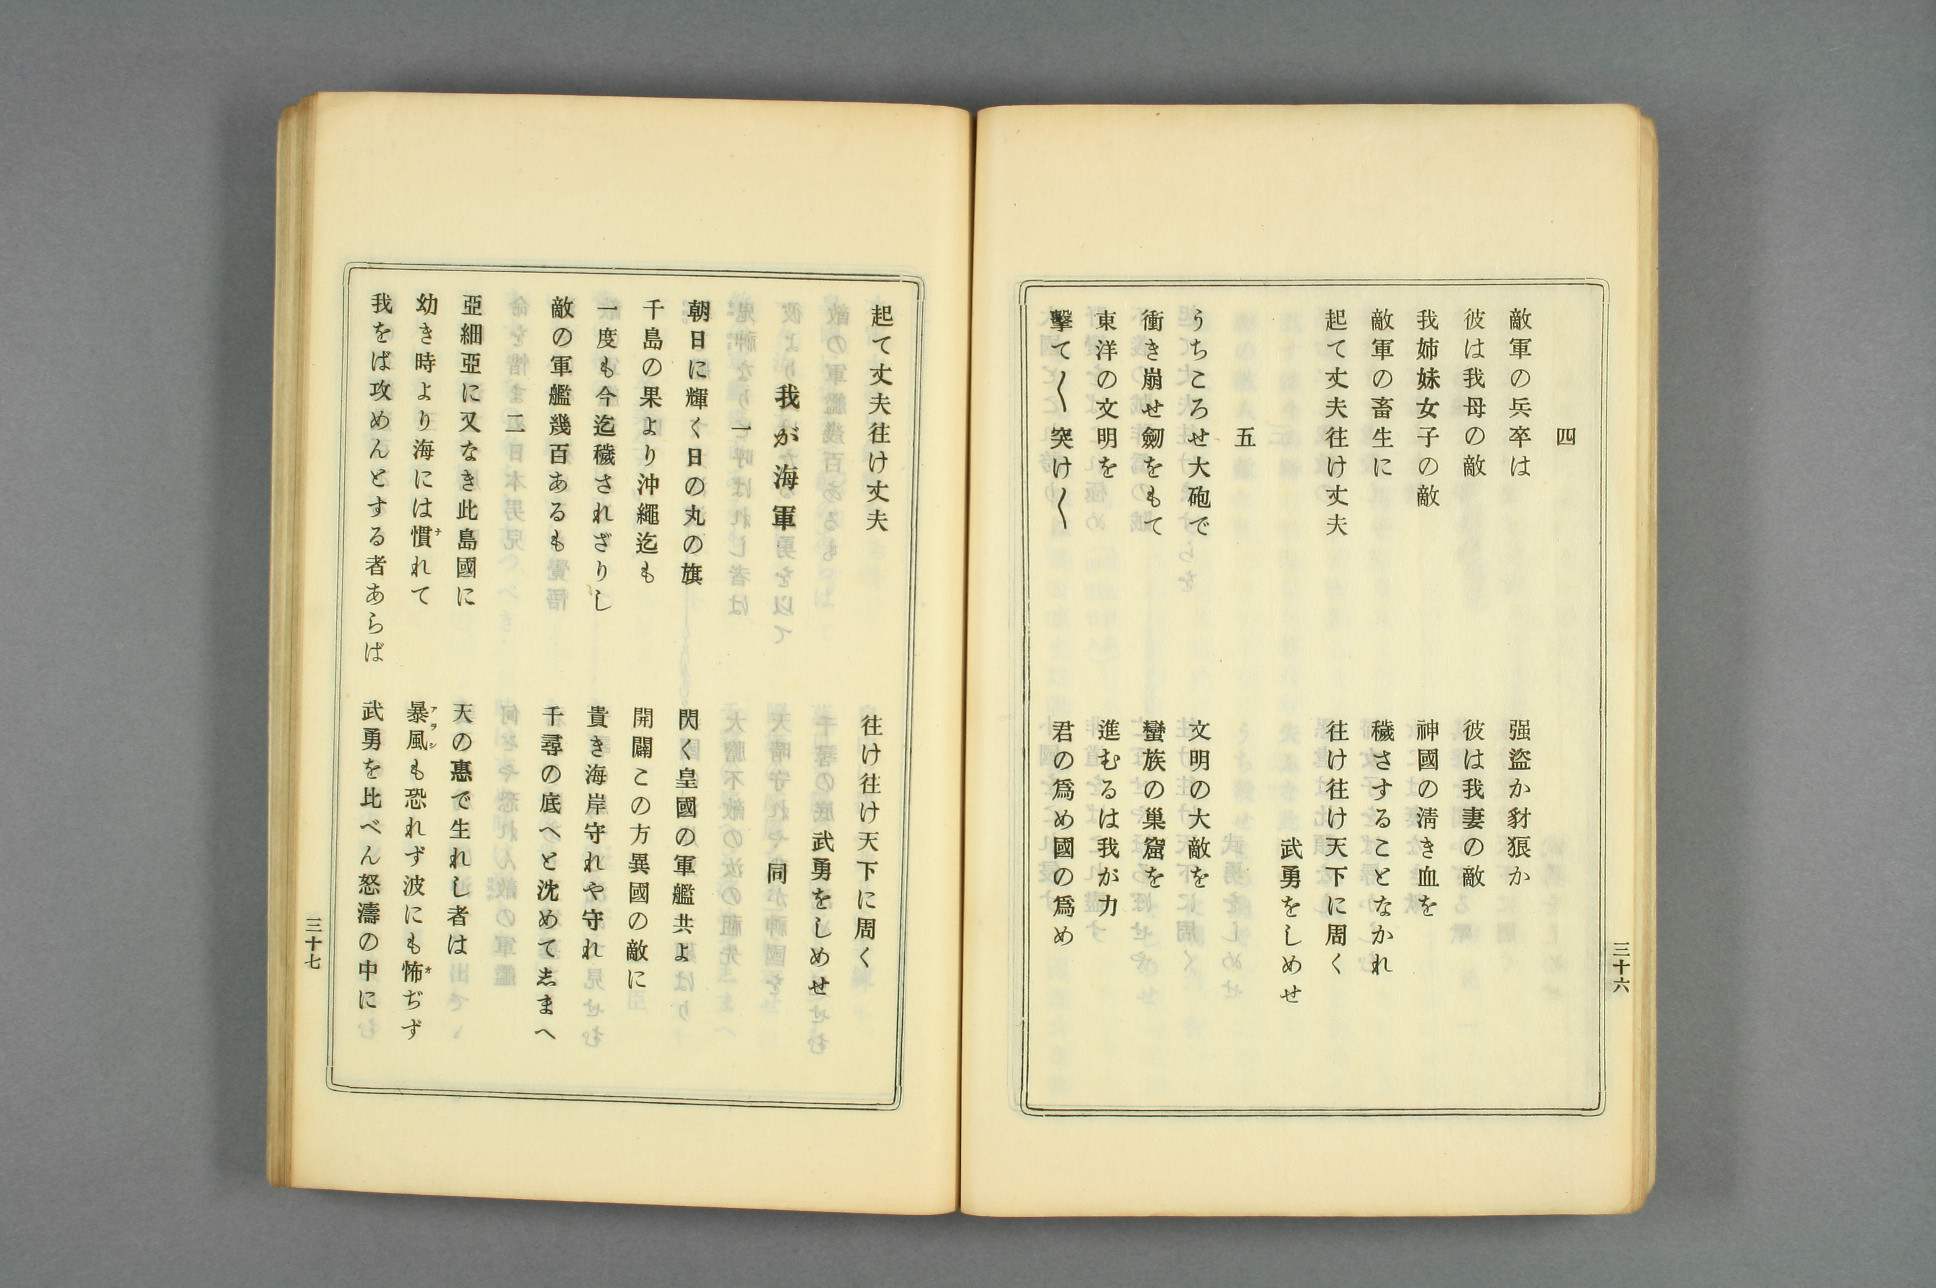 四
敵軍の兵卒は　强盜か豺狼か
彼は我母の敵　彼は我妻の敵
我姉妹女子の敵　神國の淸き血を
敵軍の畜生に　穢さすることなかれ
起て丈夫往け丈夫　往け往け天下に周く
武勇をしめせ
五
うちころせ大砲で　文明の大敵を
衝き崩せ劒をもて　蠻族の巢窟を
東洋の文明を　進むるは我が力
擊て〱突け〱　君の爲め國の爲め
三十六
起て丈夫往け丈夫　往け往け天下に周く
武勇をしめせ
我が海軍　同
一
朝日に輝く日の丸の旗　閃く皇國の軍艦共よ
千島の果より沖繩迄も　開闢この方異國の敵に
一度も今迄穢されざりし　貴き海岸守れや守れ
敵の軍艦幾百あるも　千尋の底へと沈めて志まへ
二
亞細亞に又なき此島國に　天の惠で生れし者は
幼き時より海には慣ナれて　暴風アラシも恐れず波にも怖オぢず
我をば攻めんとする者あらば　武勇を比べん怒濤の中に
三十七